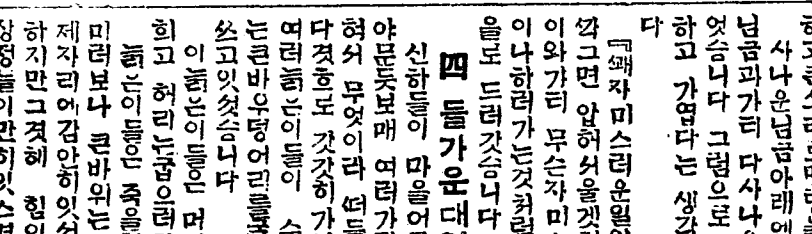 사나운님금아래엔
님금과가티 다사나
엇습니다 그럼으로
하고 가엽다는 생각
다
『쐐자미스러운일이
깍그면 압허서울겟
이와가티 무슨자미
이나하러가는것처럼
을로 드러갓습니다
四 들가운대
신하들이 마을어
야문듯보매 여러가
혀서 무엇이라 떠들
다것흐로 갓갓히가
여러늙은이들이
는큰바우덩어리를
쓰고잇섯습니다
이늙은이들은 머
희고 허리는굽으러
늙은이들은 죽을
미러보나 큰바위는
제자리에감안히잇서
하지만그것헤 힘
장정들이만히잇스